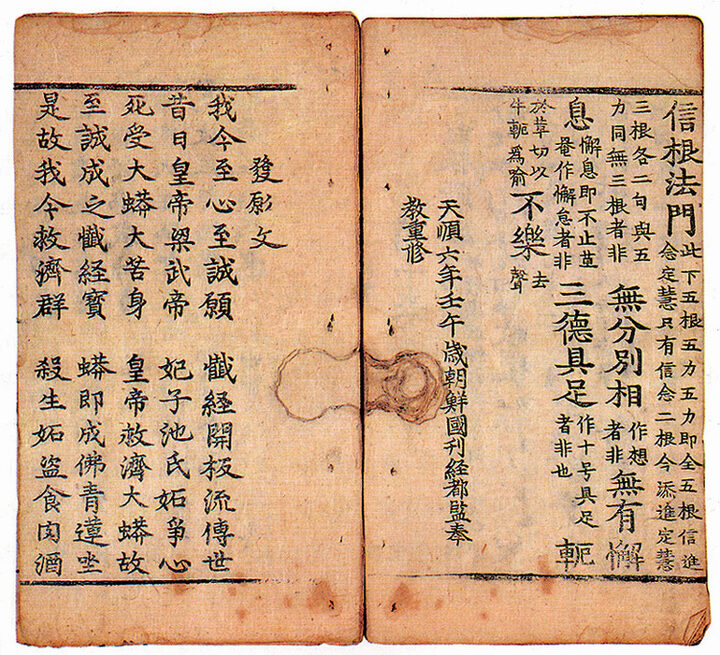 信根法門 此下五根五力五力即全五根信進念定慧只有信念二根今添進定慧
三根各二句與五力同無三根者非 無分別相 作想者非 無有懈
息 懈息即不止並毫作懈怠者非 三德具足 作十号具足者非也 軶
於草切以牛軶為喻 不樂 去聲
天順六年壬午歲朝鮮國刊經都監奉
教重修
發願文
我今至心至誠願 懺經開板流傳世
昔日皇帝梁武帝 妃子池氏妬爭心
死受大蟒大苦身 皇帝救濟大蟒故
至誠成之懺經寶 蟒即成佛青蓮坐
是故我今救濟群 殺生妬盜食肉酒